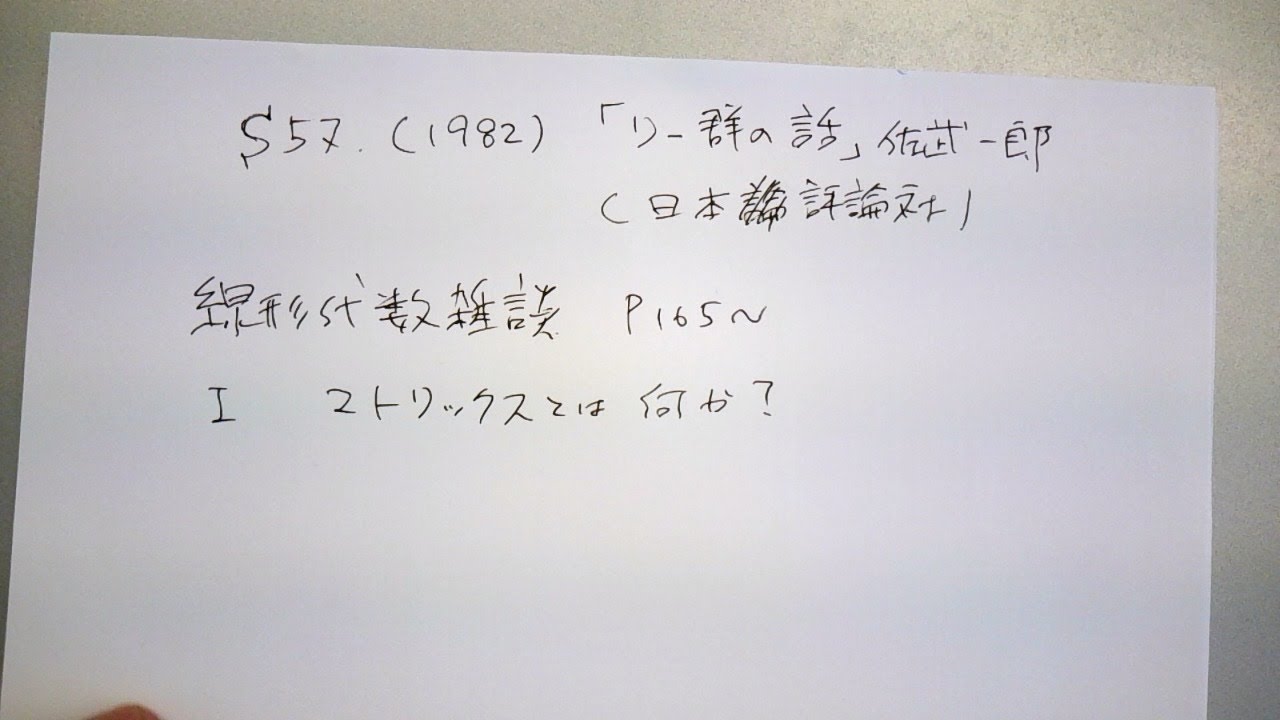 S57. (1982) 「リー群の話」佐武一郎
(日本評論社)
線形代数雑談 P165~
I マトリックスとは何か?